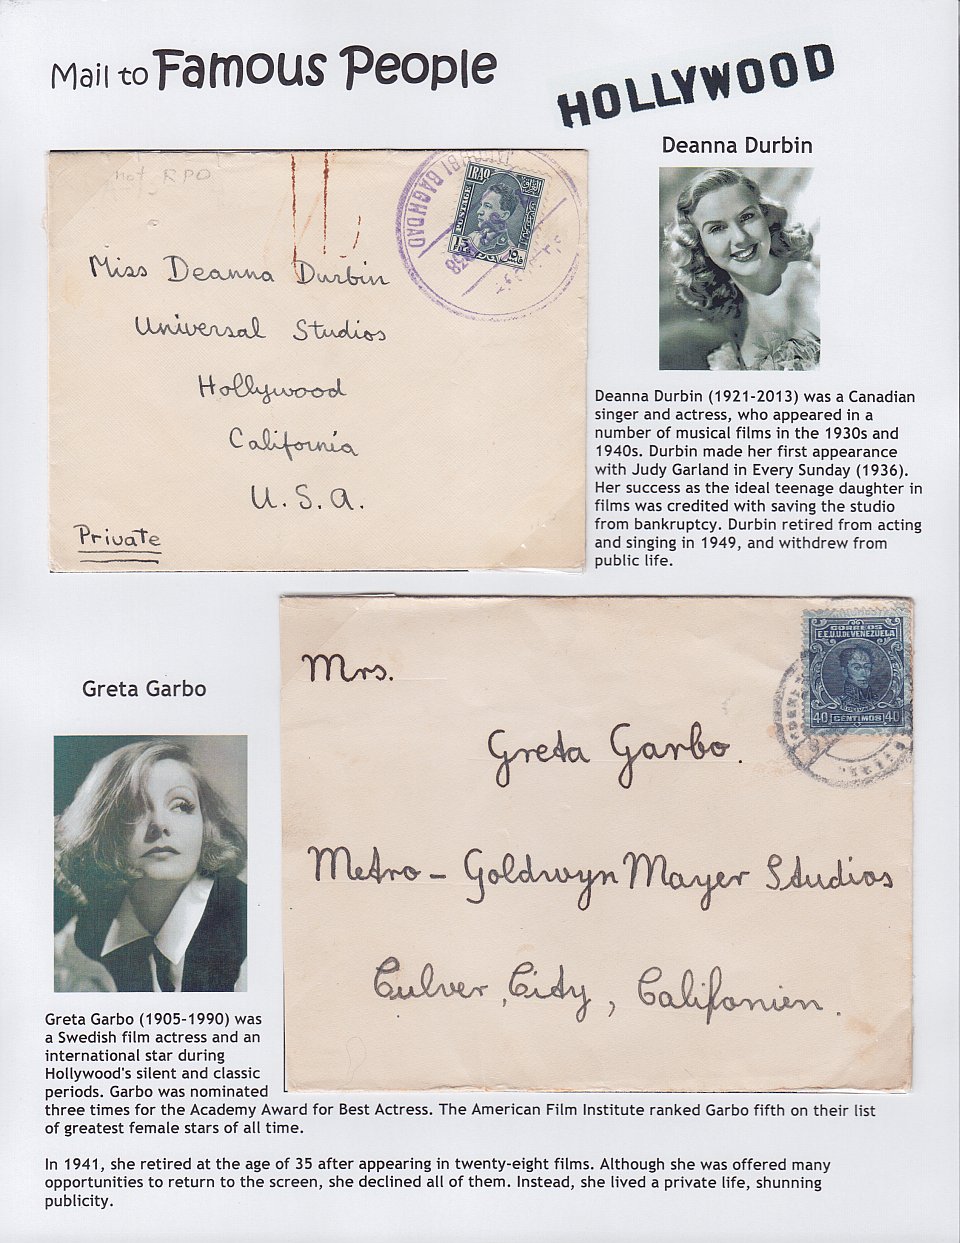 Mail to Famous People
HOLLYWOOD
Deanna Durbin
not RPO
BAGHDAD
IRAQ
POSTAGE
15
١٥
Miss Deanna Durbin
Universal Studios
Hollywood
California
U.S.A.
Private
Deanna Durbin (1921-2013) was a Canadian
singer and actress, who appeared in a
number of musical films in the 1930s and
1940s. Durbin made her first appearance
with Judy Garland in Every Sunday (1936).
Her success as the ideal teenage daughter in
films was credited with saving the studio
from bankruptcy. Durbin retired from acting
and singing in 1949, and withdrew from
public life.
CORREOS
E.E.U.U.DE VENEZUELA
BOLIVAR
40 CENTIMOS 40
Mrs.
Greta Garbo.
Metro-Goldwyn Mayer Studios
Culver, City, Califonien.
Greta Garbo
Greta Garbo (1905-1990) was
a Swedish film actress and an
international star during
Hollywood's silent and classic
periods. Garbo was nominated
three times for the Academy Award for Best Actress. The American Film Institute ranked Garbo fifth on their list
of greatest female stars of all time.
In 1941, she retired at the age of 35 after appearing in twenty-eight films. Although she was offered many
opportunities to return to the screen, she declined all of them. Instead, she lived a private life, shunning
publicity.